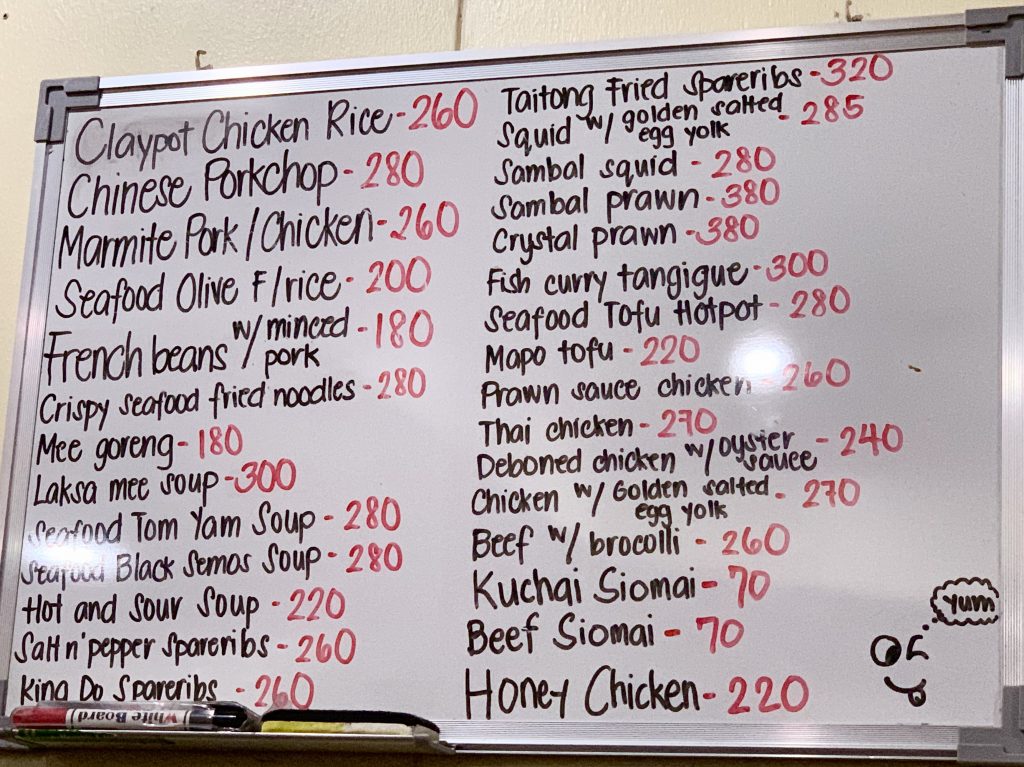 Claypot Chicken Rice - 260
Chinese Porkchop - 280
Marmite Pork / Chicken - 260
Seafood Olive F/rice - 200
French beans w/ minced pork - 180
Crispy seafood fried noodles - 280
Mee goreng - 180
Laksa mee soup - 300
Seafood Tom Yam Soup - 280
Seafood Black Semos Soup - 280
Hot and Sour Soup - 220
Salt n' pepper Spareribs - 260
King Do Spareribs - 260
White Board
Taitong Fried Spareribs - 320
Squid w/ golden salted egg yolk - 285
Sambal squid - 280
Sambal prawn - 380
Crystal prawn - 380
Fish curry tangigue - 300
Seafood Tofu Hotpot - 280
Mapo tofu - 220
Prawn sauce chicken - 260
Thai chicken - 270
Deboned chicken w/ oyster sauce - 240
Chicken w/ Golden salted egg yolk - 270
Beef w/ brocolli - 260
Kuchai Siomai - 70
Beef Siomai - 70
Honey Chicken - 220
Yum